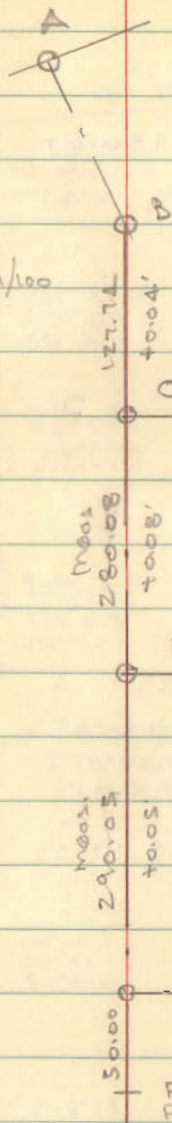 A
B
1/100
127.74
+0.04'
C
Meas.
280.08
+0.08'
Meas.
290.05
+0.05'
50.00